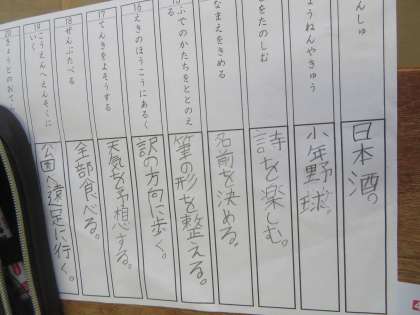 んしゅ
日本酒。
ょうねんやきゅう
小年野球。
をたのしむ
詩を楽しむ。
なまえをきめる
名前を決める。
ふでのかたちをととのえ
る
筆の形を整える。
16 えきのほうこうにあるく
訳の方向に歩く。
17 てんきをよそうする
天気を予想する。
18 ぜんぶたべる
全部食べる。
19 こうえんへえんそくに
いく
公園へ遠足に行く。
20 きょうとのおて